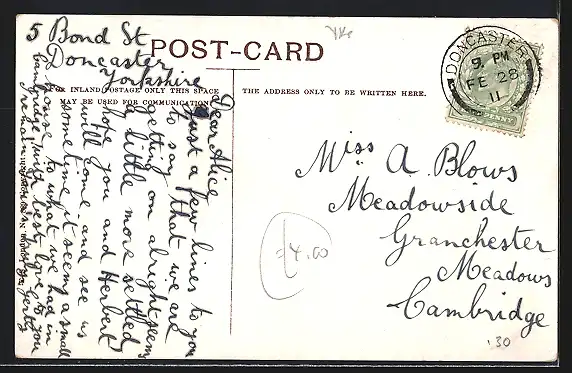 5 Bond St
Doncaster
Yorkshire
POST-CARD
FOR INLAND POSTAGE ONLY THIS SPACE
MAY BE USED FOR COMMUNICATION
THE ADDRESS ONLY TO BE WRITTEN HERE.
Dear Alice
Just a few lines to you
to say that we are
getting on alright seem
a little more settled
hope you and Herbert
will come and see us
sometime it seems a small
house to what we had in
Cambridge with best love to you
from Gerty
DONCASTER
9. PM
FE 28
11
PENNY
Miss A. Blows
Meadowside
Granchester
Meadows
Cambridge
£4.00
30